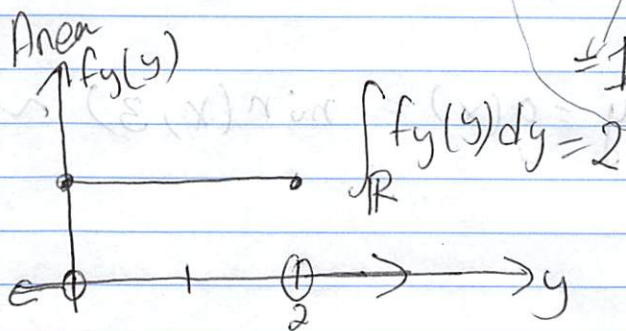 Area
fy(y)
=1
∫ℝ fy(y)dy = 2
y
2